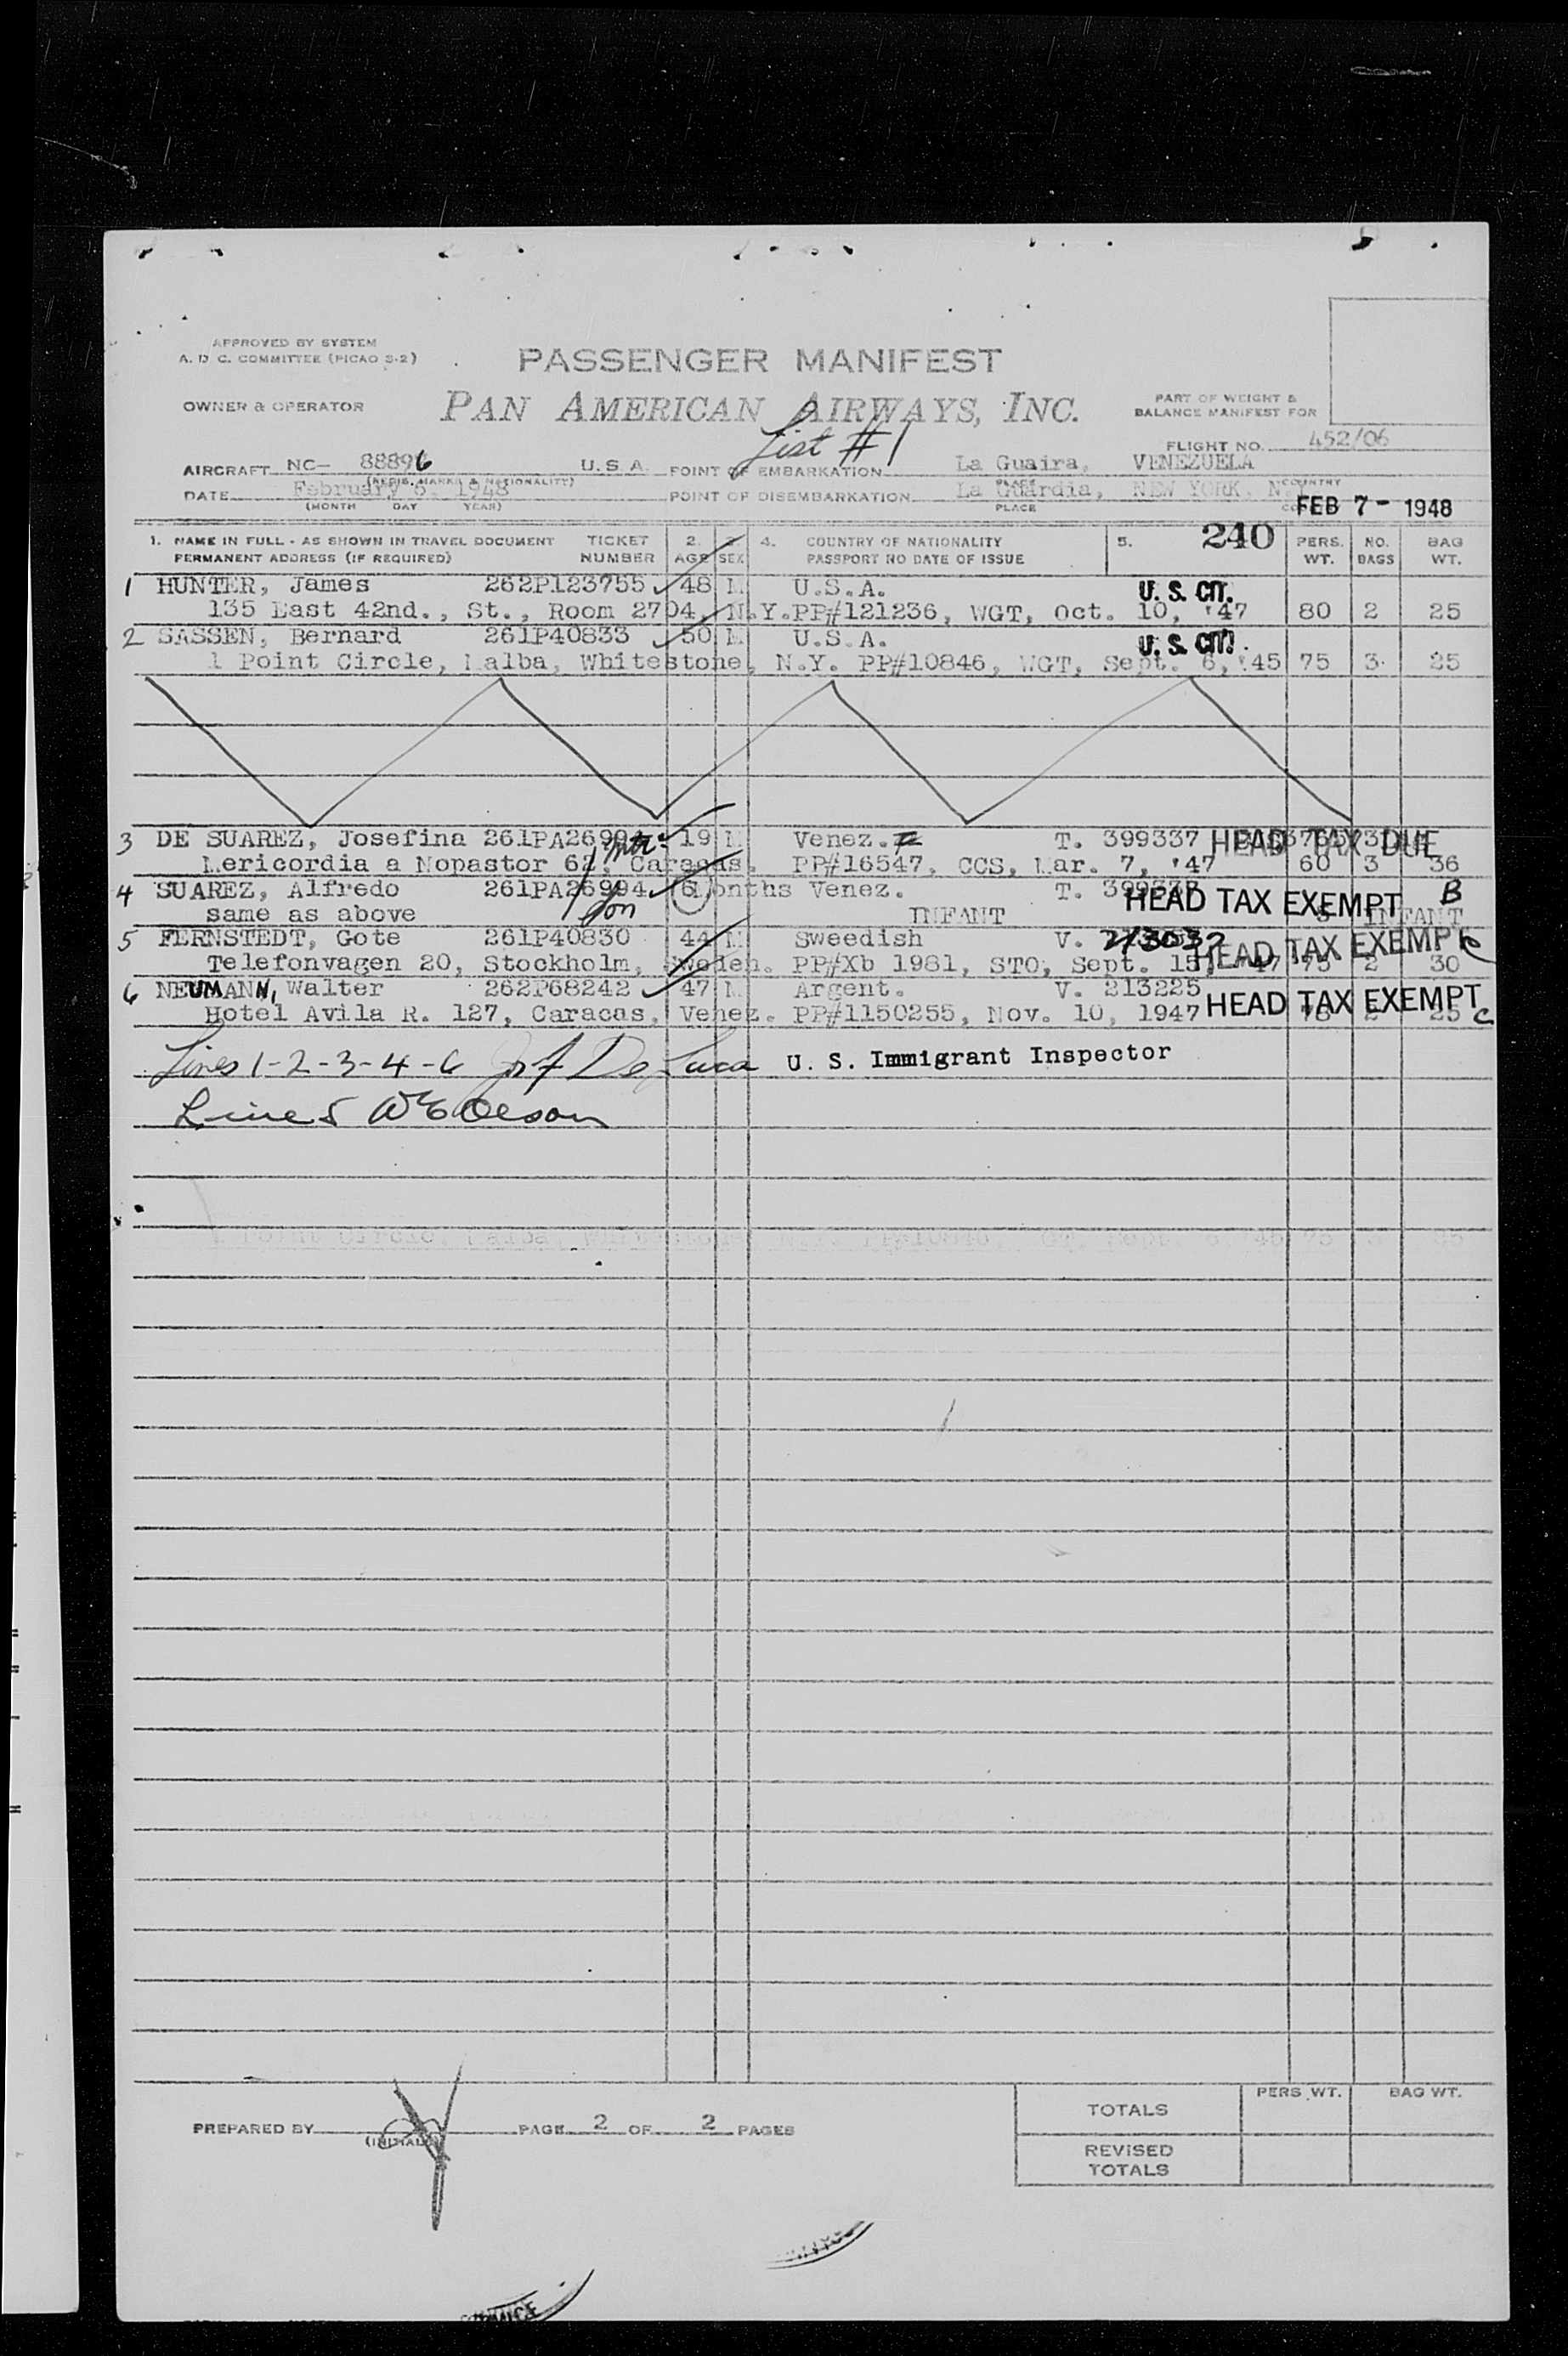 APPROVED BY SYSTEM
A. D. C. COMMITTEE (PICAO S-2)
PASSENGER MANIFEST
OWNER & OPERATOR
PAN AMERICAN AIRWAYS, INC.
PART OF WEIGHT &
BALANCE MANIFEST FOR
List #1
FLIGHT NO. 452/06
AIRCRAFT NC- 88896 U. S. A. POINT OF EMBARKATION La Guaira, VENEZUELA
(REGIS. MARKS & NATIONALITY) PLACE COUNTRY
DATE February 6, 1948 POINT OF DISEMBARKATION La Guardia, NEW YORK,
(MONTH DAY YEAR) PLACE
FEB 7 - 1948
1. NAME IN FULL - AS SHOWN IN TRAVEL DOCUMENT TICKET 2. 4. COUNTRY OF NATIONALITY 5. 240 PERS. NO. BAG
PERMANENT ADDRESS (IF REQUIRED) NUMBER AGE SEX PASSPORT NO DATE OF ISSUE WT. BAGS WT.
1 HUNTER, James 262P123755 48 M U.S.A. U. S. CIT.
135 East 42nd., St., Room 2704, N.Y. PP#121236, WGT, Oct. 10, '47 80 2 25
2 SASSEN, Bernard 261P40833 50 M U.S.A. U. S. CIT.
1 Point Circle, Malba, Whitestone, N.Y. PP#10846, WGT, Sept. 6, '45 75 3 25
3 DE SUAREZ, Josefina 261PA26994 19 M Venez. F T. 399337 HEAD TAX DUE
Mericordia a Nopastor 62, Caracas. PP#16547, CCS, Mar. 7, '47 60 3 36
4 SUAREZ, Alfredo 261PA26994 6 Months Venez. T. HEAD TAX EXEMPT B
same as above Son INFANT INFANT
5 FERNSTEDT, Gote 261P40830 44 M Sweedish V. 213032 HEAD TAX EXEMPT C
Telefonvagen 20, Stockholm, Sweden. PP#Xb 1981, STO, Sept. 15, '47 75 2 30
6 NEUMANN, Walter 262P68242 47 M Argent. V. 213225 HEAD TAX EXEMPT
Hotel Avila R. 127, Caracas, Venez. PP#1150255, Nov. 10, 1947 2 25 C
Lines 1-2-3-4-6 De Luca U. S. Immigrant Inspector
Line 5 Olson
PREPARED BY PAGE 2 OF 2 PAGES
(INITIALS)
PERS. WT. BAG WT.
TOTALS
REVISED
TOTALS